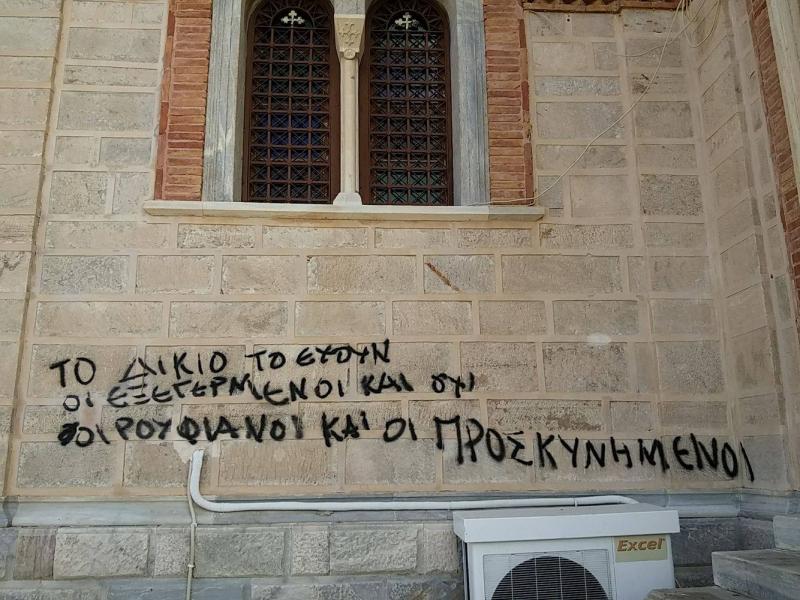 ΤΟ ΔΙΚΙΟ ΤΟ ΕΧΟΥΝ
ΟΙ ΕΞΕΓΕΡΜΕΝΟΙ ΚΑΙ ΟΧΙ
ΟΙ ΡΟΥΦΙΑΝΟΙ ΚΑΙ ΟΙ ΠΡΟΣΚΥΝΗΜΕΝΟΙ
Excel